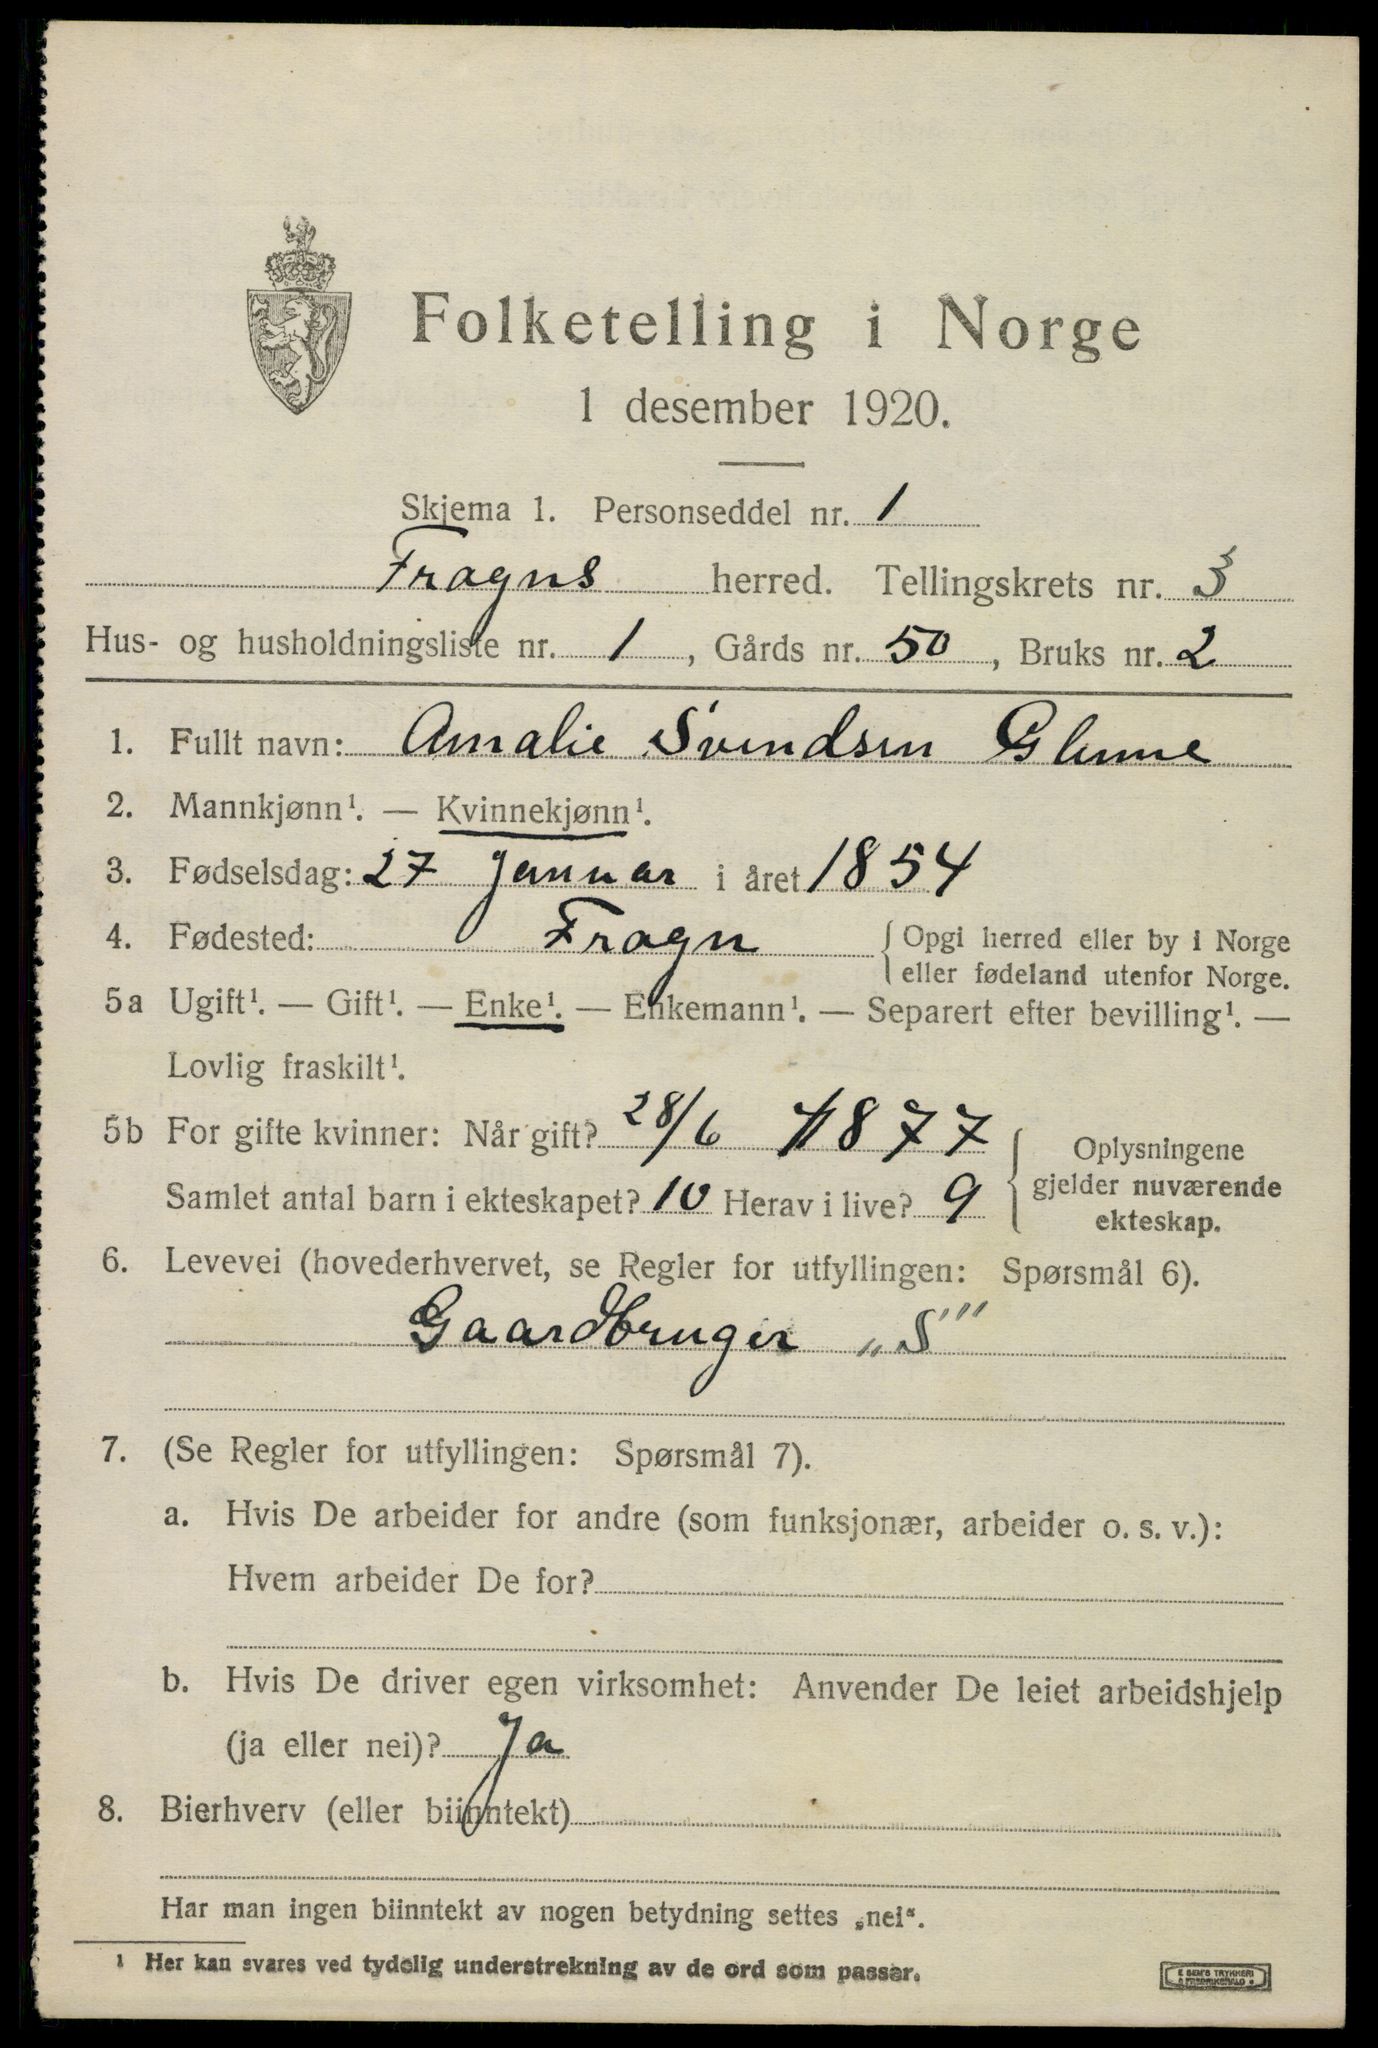 Folketelling i Norge
1 desember 1920.
Skjema 1. Personseddel nr. 1
Frogns herred. Tellingskrets nr. 3
Hus- og husholdningsliste nr. 1, Gårds nr. 50, Bruks nr. 2
1. Fullt navn: Amalie Svendsen Glenne
2. Mannkjønn¹. — Kvinnekjønn¹.
3. Fødselsdag: 27 Januar i året 1854
4. Fødested: Frogn { Opgi herred eller by i Norge
eller fødeland utenfor Norge.
5a Ugift¹. — Gift¹. — Enke¹. — Enkemann¹. — Separert efter bevilling¹. —
Lovlig fraskilt¹.
5b For gifte kvinner: Når gift? 28/6 1877
Samlet antal barn i ekteskapet? 10 Herav i live? 9
{ Oplysningene
gjelder nuværende
ekteskap.
6. Levevei (hovederhvervet, se Regler for utfyllingen: Spørsmål 6).
Gaardbruger „S"
7. (Se Regler for utfyllingen: Spørsmål 7).
a. Hvis De arbeider for andre (som funksjonær, arbeider o. s. v.):
Hvem arbeider De for?
b. Hvis De driver egen virksomhet: Anvender De leiet arbeidshjelp
(ja eller nei)? Ja
8. Bierhverv (eller biinntekt)
Har man ingen biinntekt av nogen betydning settes „nei".
¹ Her kan svares ved tydelig understrekning av de ord som passer.
E SEM'S TRYKKERI
FREDRIKSHALD